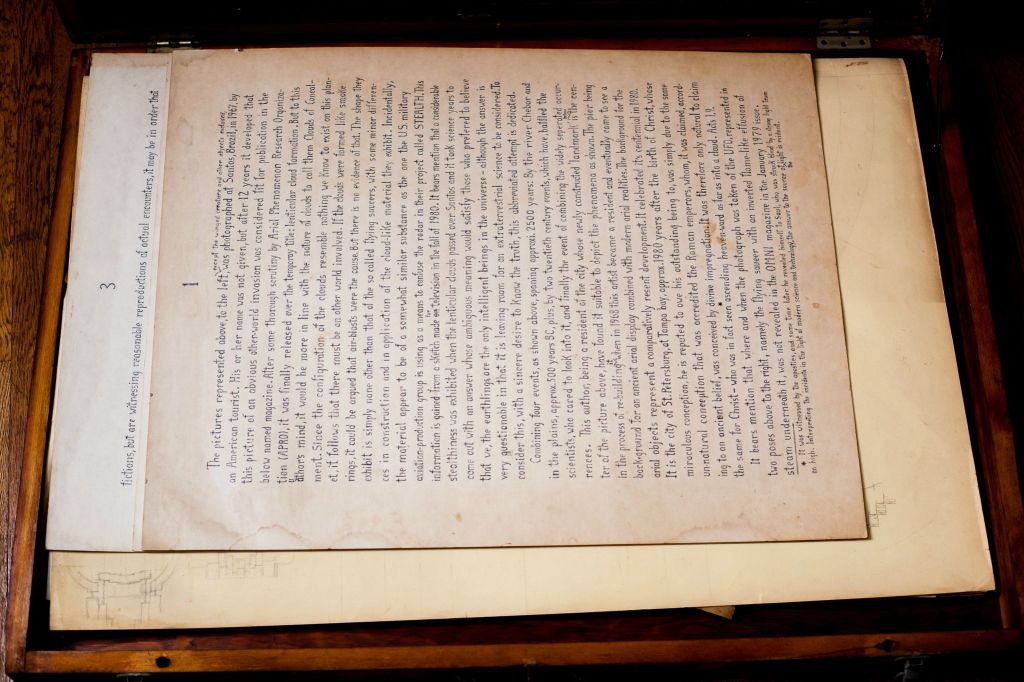 fictions, but are witnessing reasonable reproductions of actual encounters, it may be in order that
3
1
The pictures represented above, to the left, was photographed at Santos, Brazil, in 1967, by
an American tourist. His or her name was not given, but after 12 years it developed that
this picture of an obvious otherworld invasion was considered fit for publication in the
below named magazine. After some thorough scrutiny by Arial Phenomenon Research Organiza-
tion (APRO), it was finally released over the temporay title: lenticular cloud formation. But to this
author's mind, it would be more in line with the nature of clouds to call them Clouds of Conceal-
ment, Since the configuration of the clouds resemble nothing we know to exist on this plan-
et, it follows that there must be an other world involved. If the clouds were formed like smoke
rings, it could be argued that air-blasts were the cause. But there is no evidence of that. The shape they
exhibit is simply none other than that of the so called flying saucers, with some minor differen-
ces in construction and in application of the cloud-like material they exhibit. Incidentally,
the material appear to be of a somewhat similar substance as the one the U.S. military
aviation-production group is using as a means to confuse the radar in their project called STEALTH. This
information is gained from a sketch made for television in the fall of 1980. It bears mention that a considerable
stealthiness was exhibited when the lenticular clouds passed over Santos and it took science years to
come out with an answer whose ambiguous meaning would satisfy those who preferred to believe
that we, the earthlings are the only intelligent beings in the universe - although the answer is
very questionable in that it is leaving room for an extraterrestrial science to be considered. To
consider this, with a sincere desire to know the truth, this abreviated attempt is dedicated.
Combining four events, as shown above, spaning approx. 2500 years: By the river Chebar and
in the plains, approx. 500 years BC, plus, by two twentieth century events, which have baffled the
scientists, who cared to look into it, and finally the event of combining the widely seperated occur-
rences. This author, being a resident of the city whose newly constructed landmark is the cen-
ter of the picture above, have found it suitable to depict the phenomena as shown. The pier being
in the process of re-building when in 1968 this artist became a resident and eventually came to see a
background for an ancient arial display combined with modern arial realities. The background for the
arial objects represent a comparatively resent development. It celebrated its centennial in 1980.
It is the city of St. Petersburg, at Tampa bay, approx. 1980 years after the birth of Christ, whose
miraculous conception, he is reputed to owe his outstanding being to, was simply due to the same
un-natural conception that was accredited the Roman emperors, whom, it was claimed, accord-
ing to an ancient belief, was conceived by divine impregnation. It was therefore only natural to claim
the same for Christ - who was in fact seen ascending heaven-ward as far as into a cloud. Acts 1,9.
It bears mention that where and when the photograph was taken of the UFO, represented in
two poses above to the right, namely the flying saucer with an inverted flame-like effusion of
steam underneath it, was not revealed in the OMNI magazine in the January 1979 issue.
* It was witnessed by the apostles, and some time later he revealed himself to Saul, who was struck blind by a strong light from
on high. Interpreting the incidents in the light of modern science and technology, the answer to the source of light is evident.